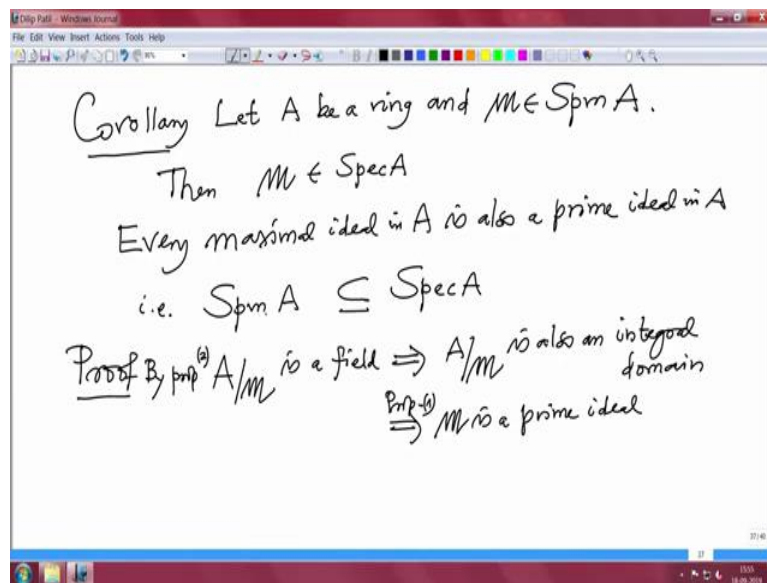 Dilip Patil - Windows Journal
File Edit View Insert Actions Tools Help
Corollary Let A be a ring and 𝔪 ∈ Spm A.
Then 𝔪 ∈ Spec A
Every maximal ideal in A is also a prime ideal in A
i.e. Spm A ⊆ Spec A
Proof By prop (2) A/𝔪 is a field ⇒ A/𝔪 is also an integral domain
Prop-(1) ⇒ 𝔪 is a prime ideal
37/40
37
15:55